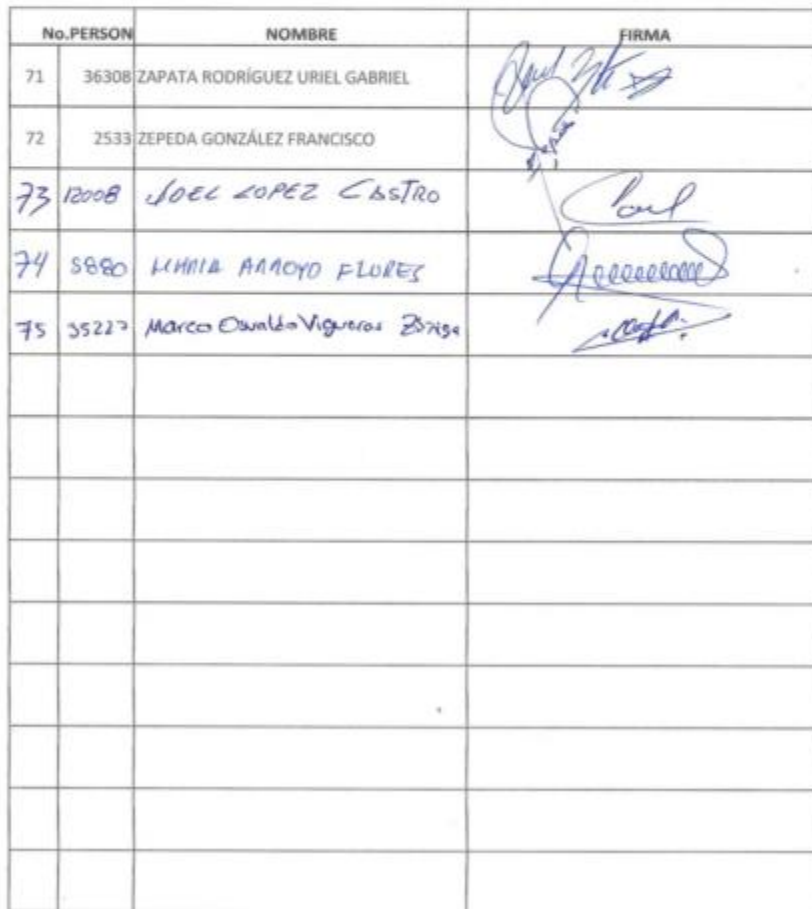 No.PERSON NOMBRE FIRMA
71 36308 ZAPATA RODRÍGUEZ URIEL GABRIEL
72 2533 ZEPEDA GONZÁLEZ FRANCISCO
73 12008 JOEL LOPEZ CASTRO
74 5880 ARROYO FLORES
75 35227 Marco Osvaldo Vigueras